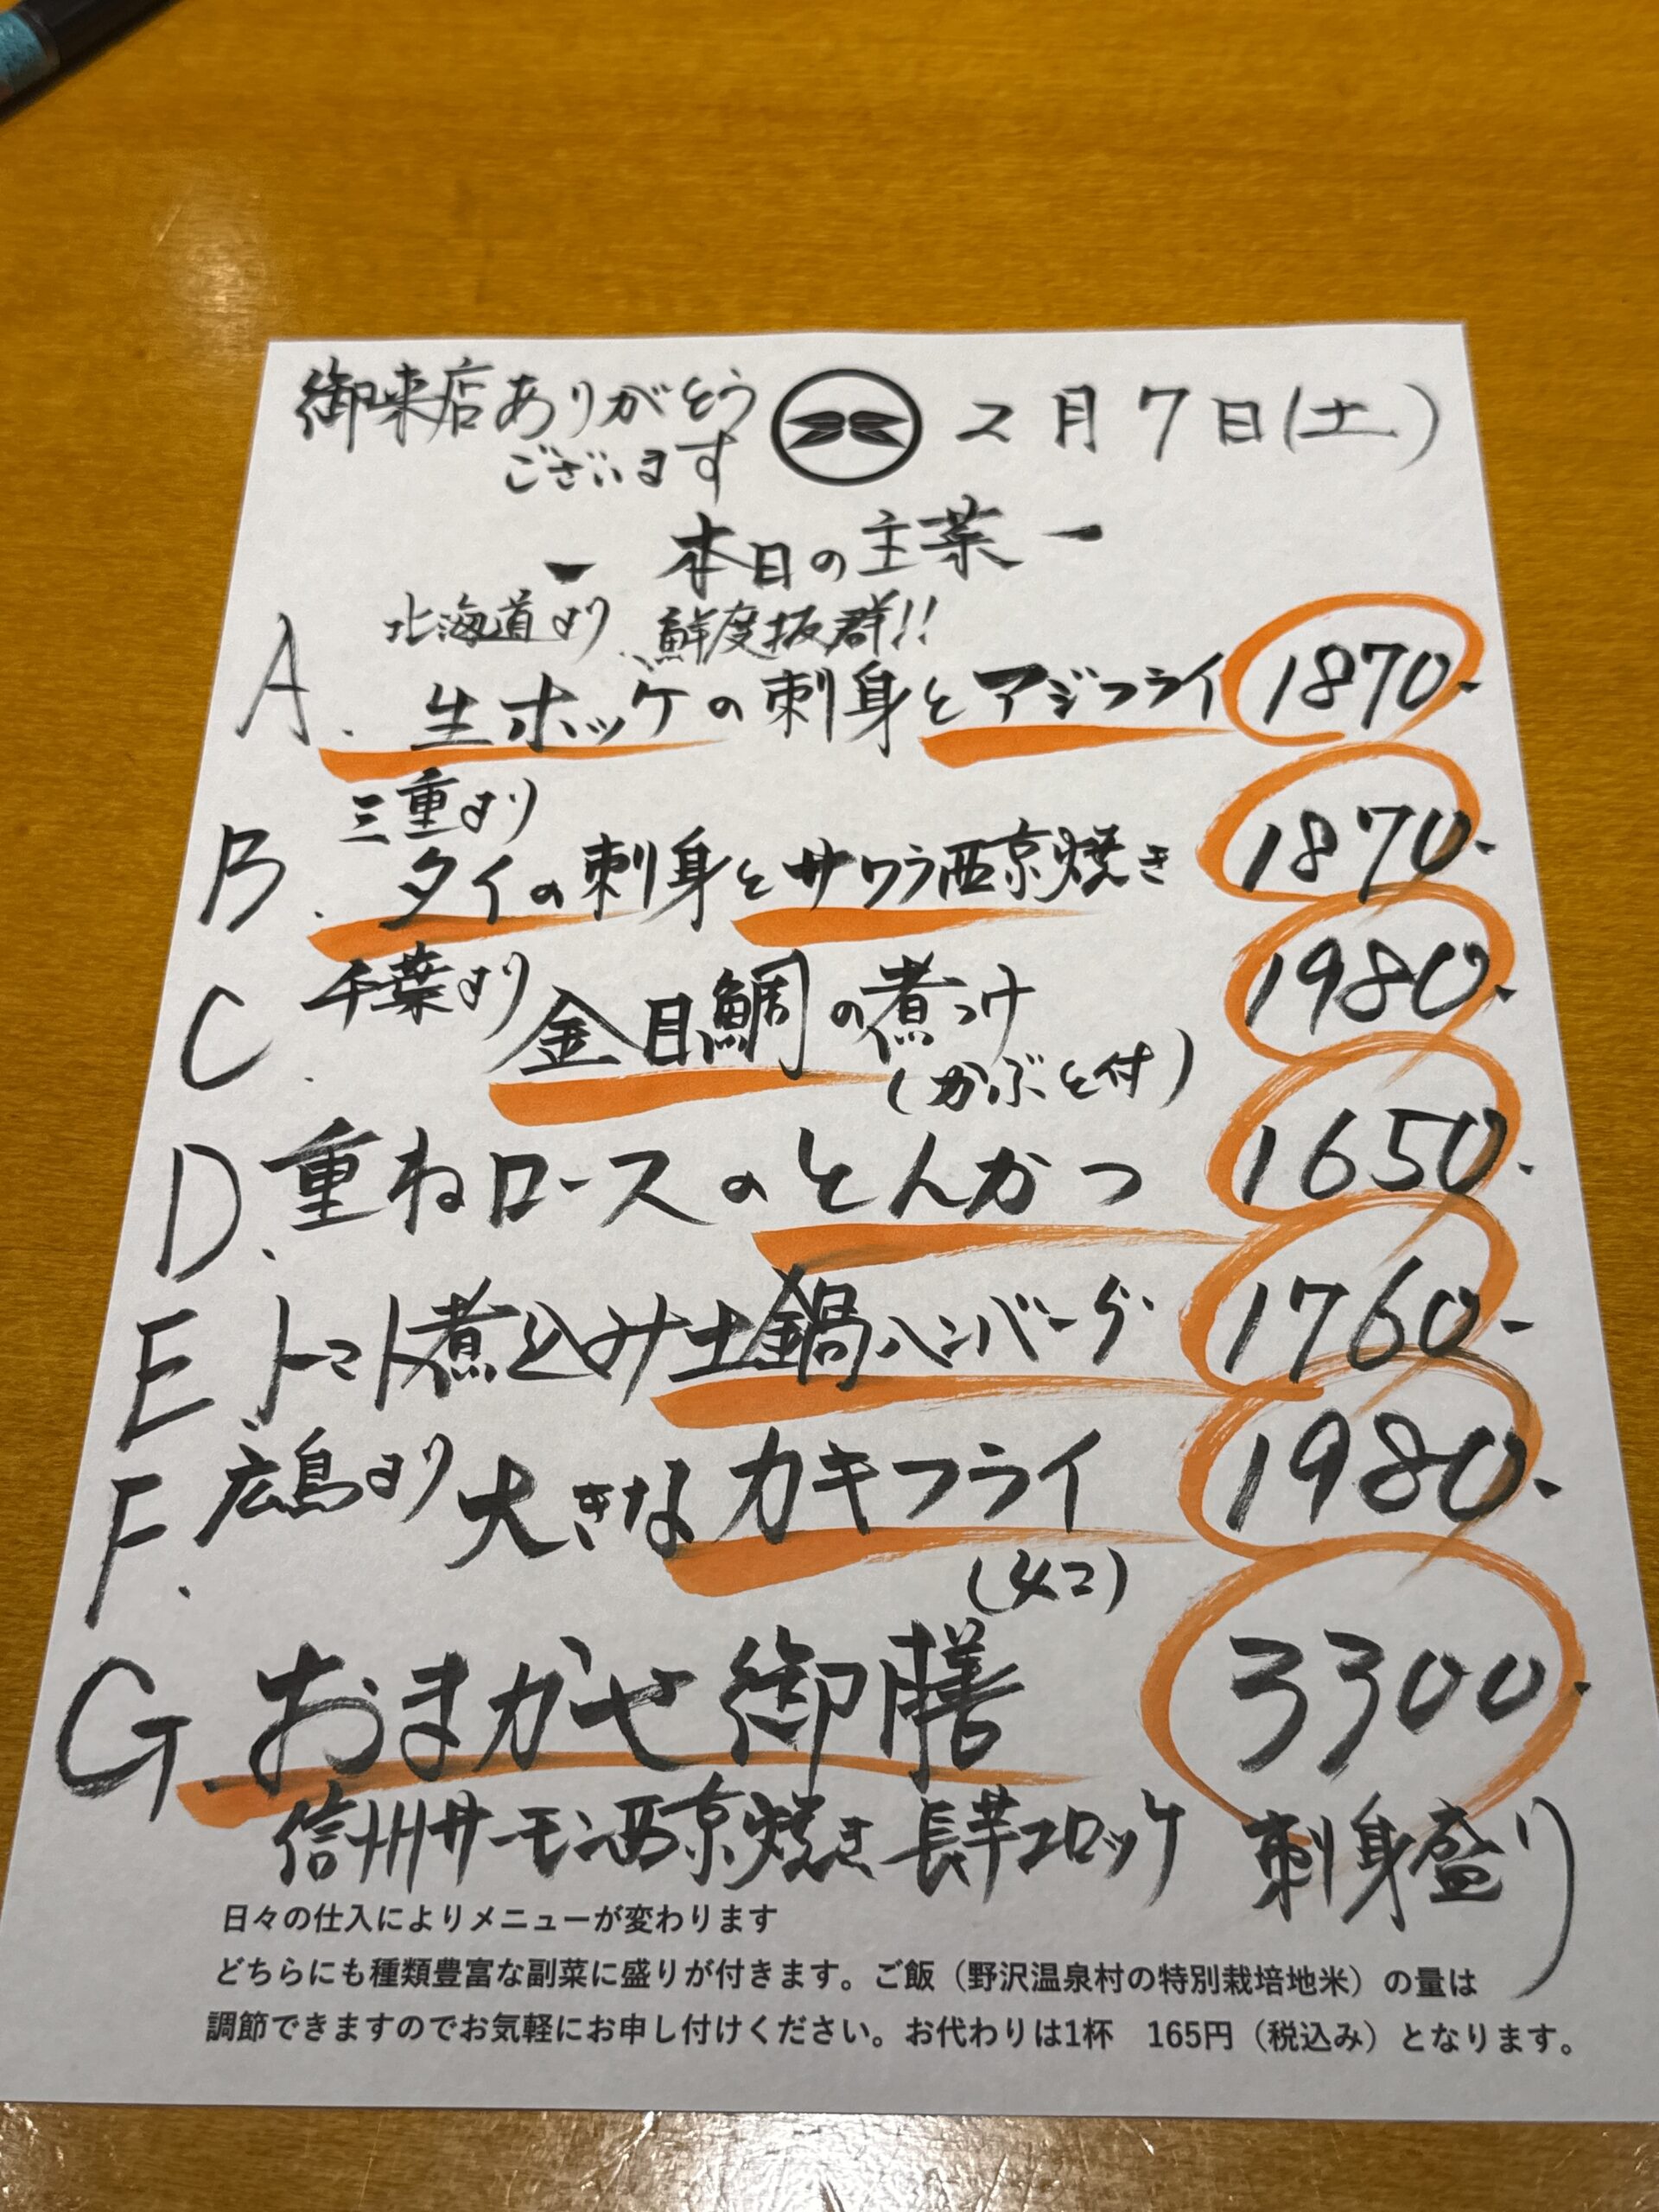 御来店ありがとう
ございます
2月7日(土)
- 本日の主菜 -
北海道より 鮮度抜群!!
A. 生ホッケの刺身とアジフライ 1870-
三重より
B. タイの刺身とサワラ西京焼き 1870-
C. 千葉より 金目鯛の煮つけ 1980-
(かぶと付)
D. 重ねロースのとんかつ 1650-
E トマト煮込み土鍋ハンバーグ 1760-
F. 広島より 大きなカキフライ 1980-
(4コ)
G. おまかせ御膳 3300-
信州サーモン西京焼き 長芋コロッケ 刺身盛り)
日々の仕入によりメニューが変わります
どちらにも種類豊富な副菜に盛りが付きます。ご飯（野沢温泉村の特別栽培地米）の量は
調節できますのでお気軽にお申し付けください。お代わりは1杯 165円（税込み）となります。